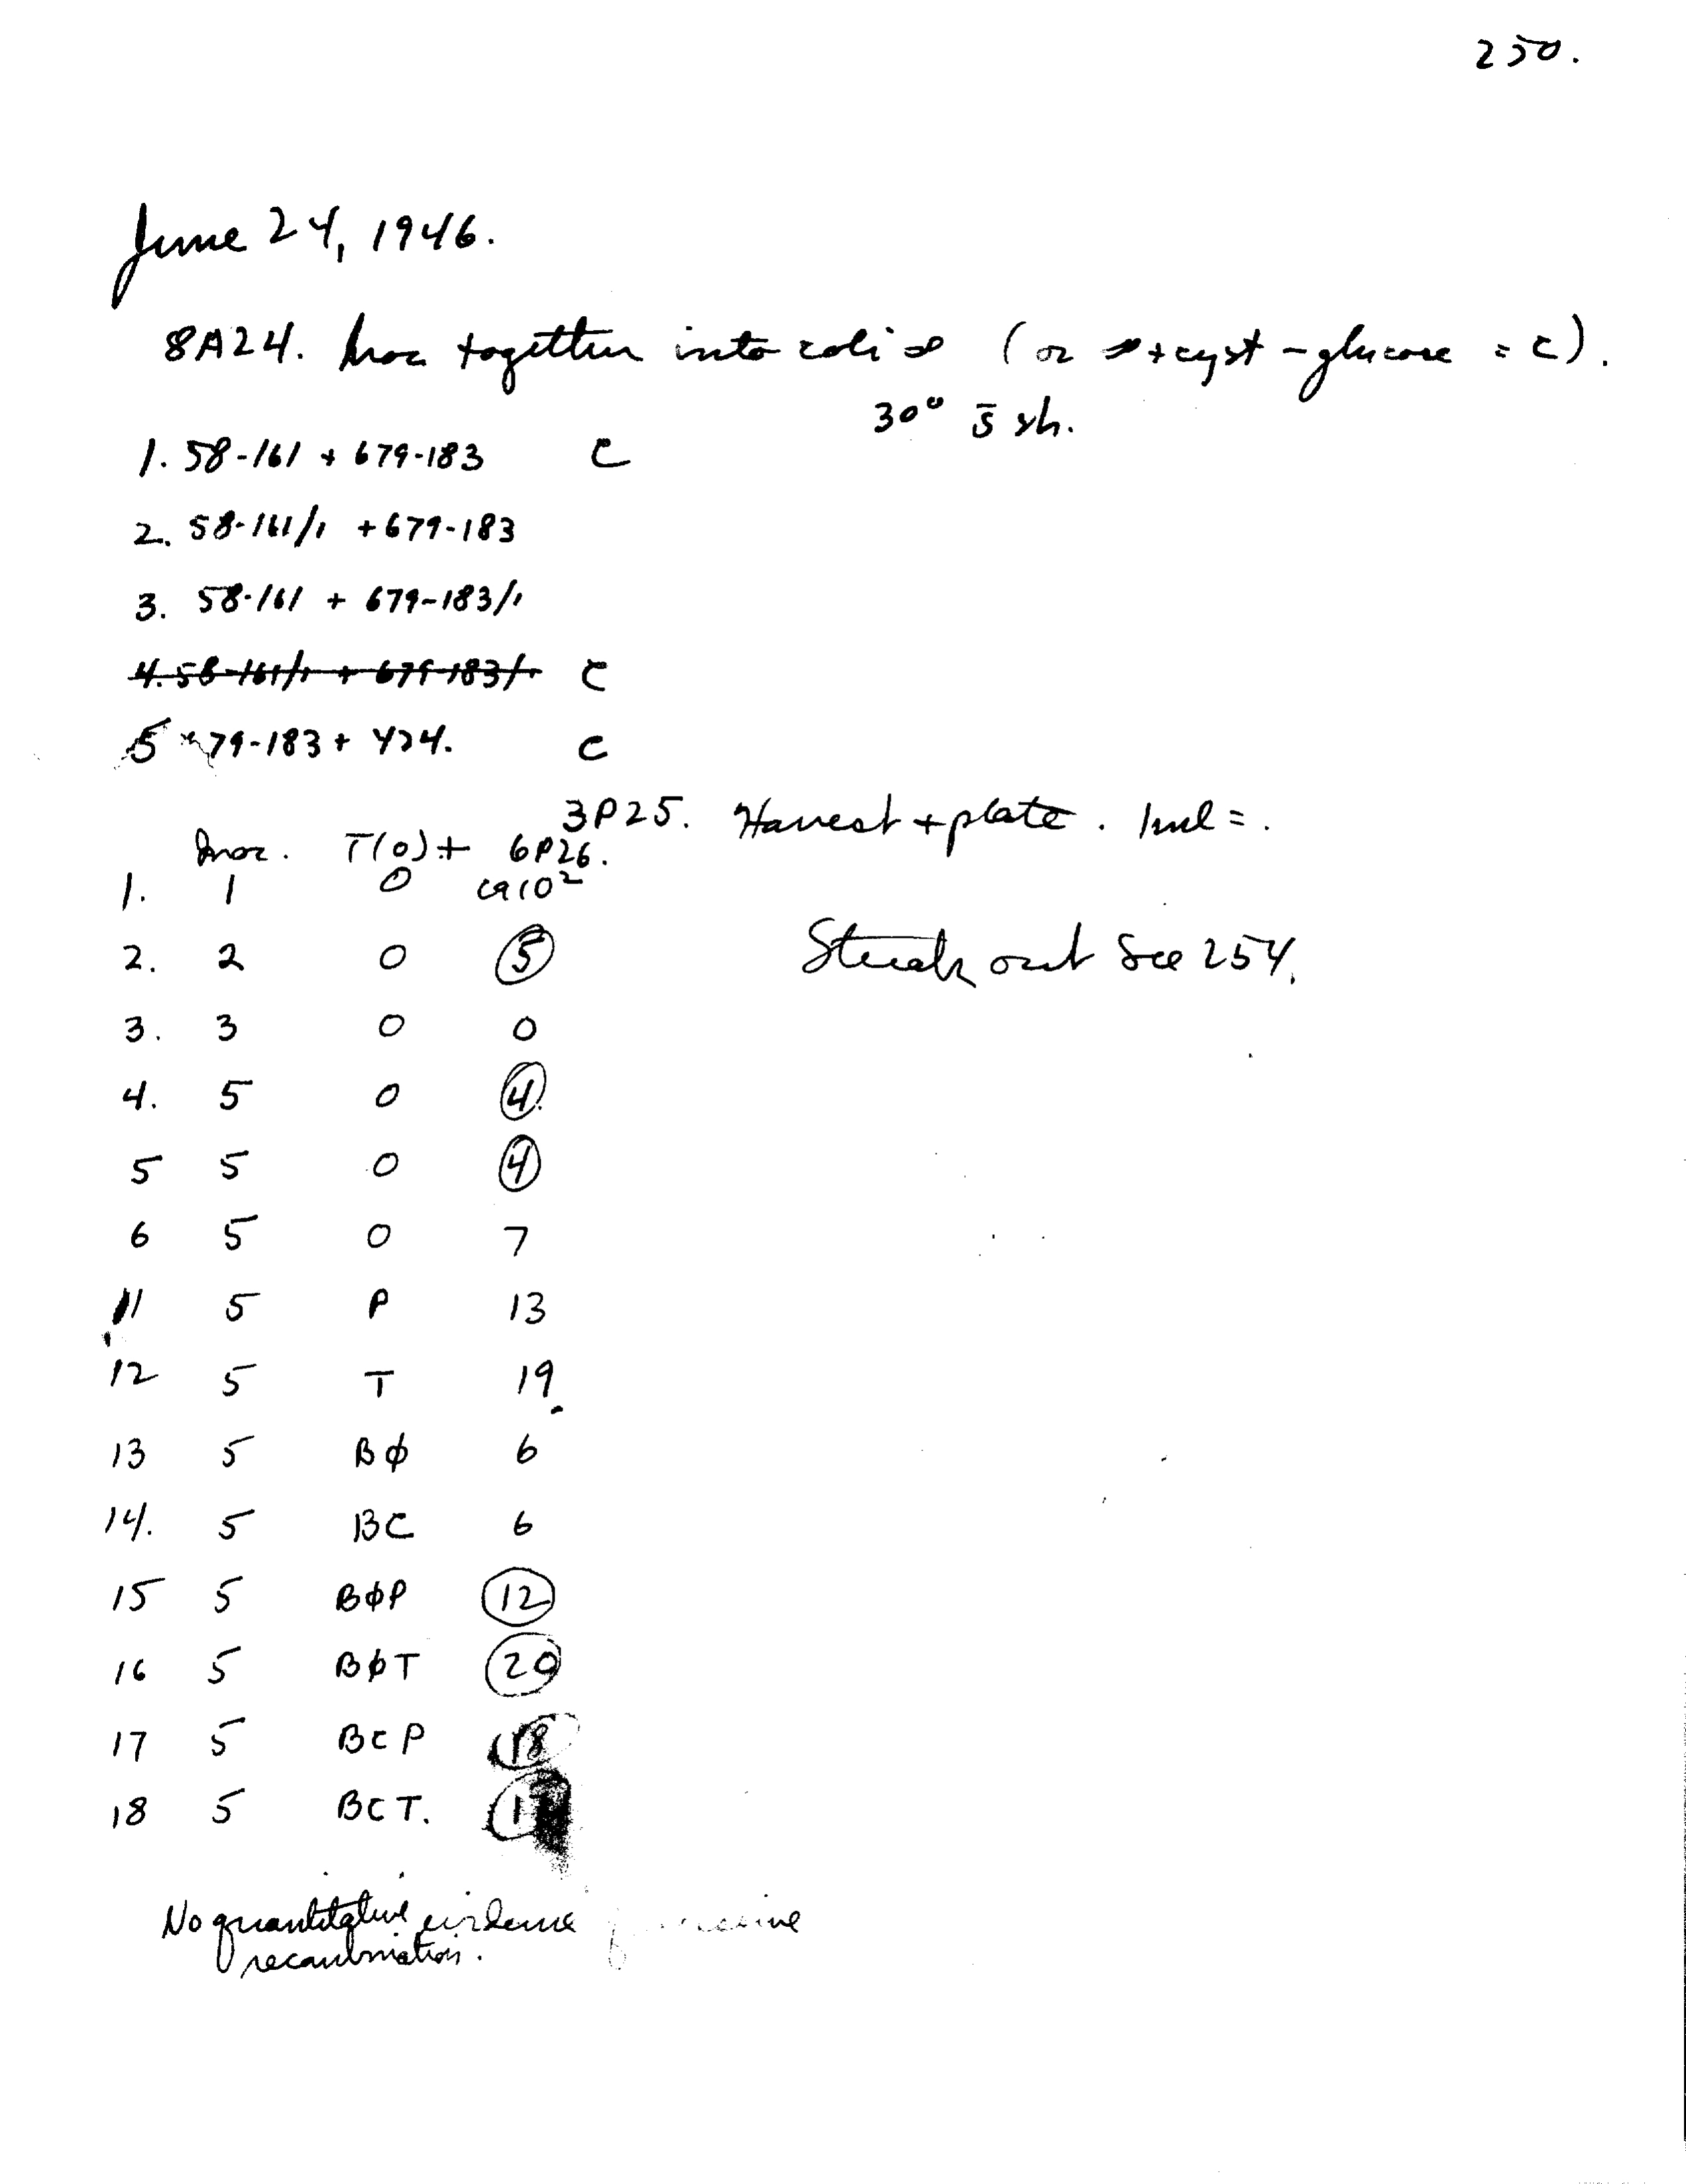 250.
June 24, 1946.
8A24. Inoc together into coli ∞ (or ∞ + cyst - glucose = C).
30° s̄ sh.
1. 58-161 + 679-183 C
2. 58-161/1 + 679-183
3. 58-161 + 679-183/1
4. 58-161/1 + 679-183/1 C
5 679-183 + 424. C
3P25. Harvest + plate. 1ml = .
Inoc. T(0)+ 6P26.
1. 1 0 ca 10²
2. 2 0 5 Streak out See 254.
3. 3 0 0
4. 5 0 4
5 5 0 4
6 5 0 7
11 5 P 13
12 5 T 19
13 5 Bφ 6
14. 5 BC 6
15 5 BφP 12
16 5 BφT 20
17 5 BCP 18
18 5 BCT.
No quantitative evidence
recombination.